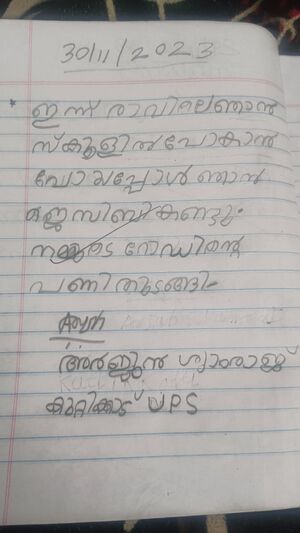 30/11/2023
* ഇന്ന് രാവിലെ ഞാൻ
സ്കൂളിൽ പോകാൻ
പോയപ്പോൾ ഞാൻ
ജെസിബി കണ്ടു.
നമ്മുടെ റോഡിന്റെ
പണി തുടങ്ങി.
അർജ്ജുൻ ശ്യാംരാജ്
കുറ്റിക്കാട് UPS